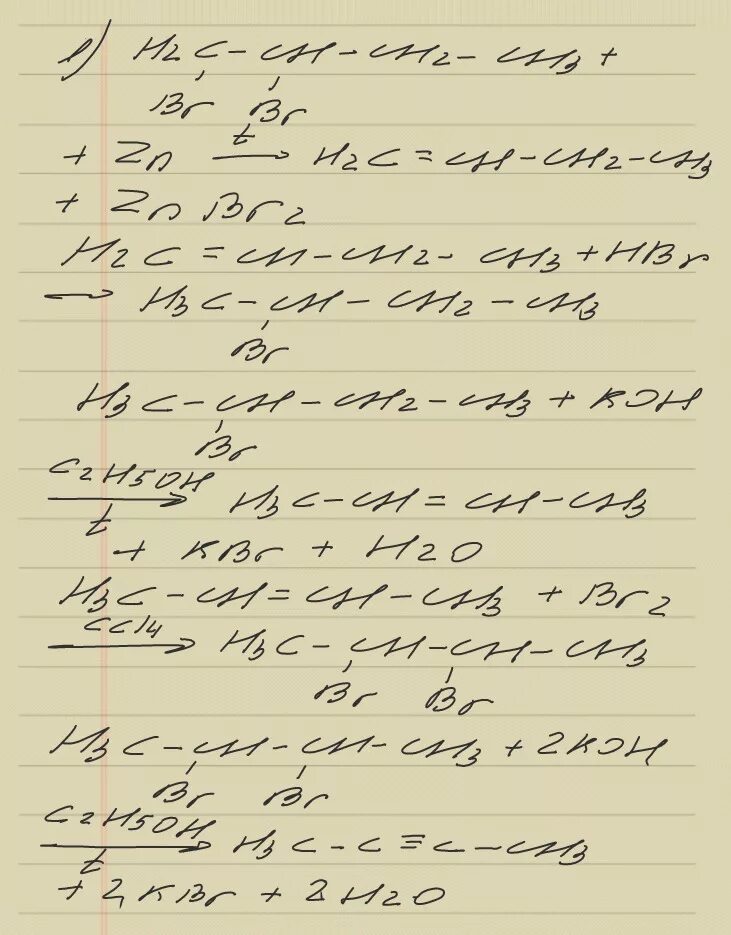 в) H2C - CH - CH2 - CH3 +
Br Br
+ Zn t → H2C = CH - CH2 - CH3
+ Zn Br2
H2C = CH - CH2 - CH3 + HBr
→ H3C - CH - CH2 - CH3
Br
H3C - CH - CH2 - CH3 + KOH
Br
C2H5OH
→ H3C - CH = CH - CH3
t
+ KBr + H2O
H3C - CH = CH - CH3 + Br2
CCl4 → H3C - CH - CH - CH3
Br Br
H3C - CH - CH - CH3 + 2KOH
Br Br
C2H5OH
→ H3C - C ≡ C - CH3
t
+ 2KBr + 2H2O